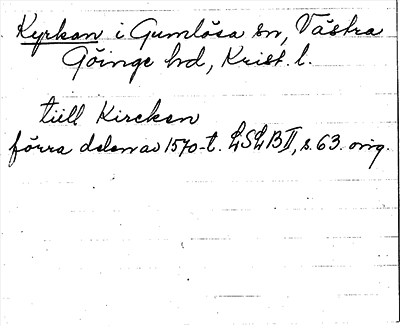 Kyrkan i Gumlösa sn, Västra
Göinge hd, Krist. l.
till Kircken
förra delen av 1570-t. LSLB II, s. 63. orig.